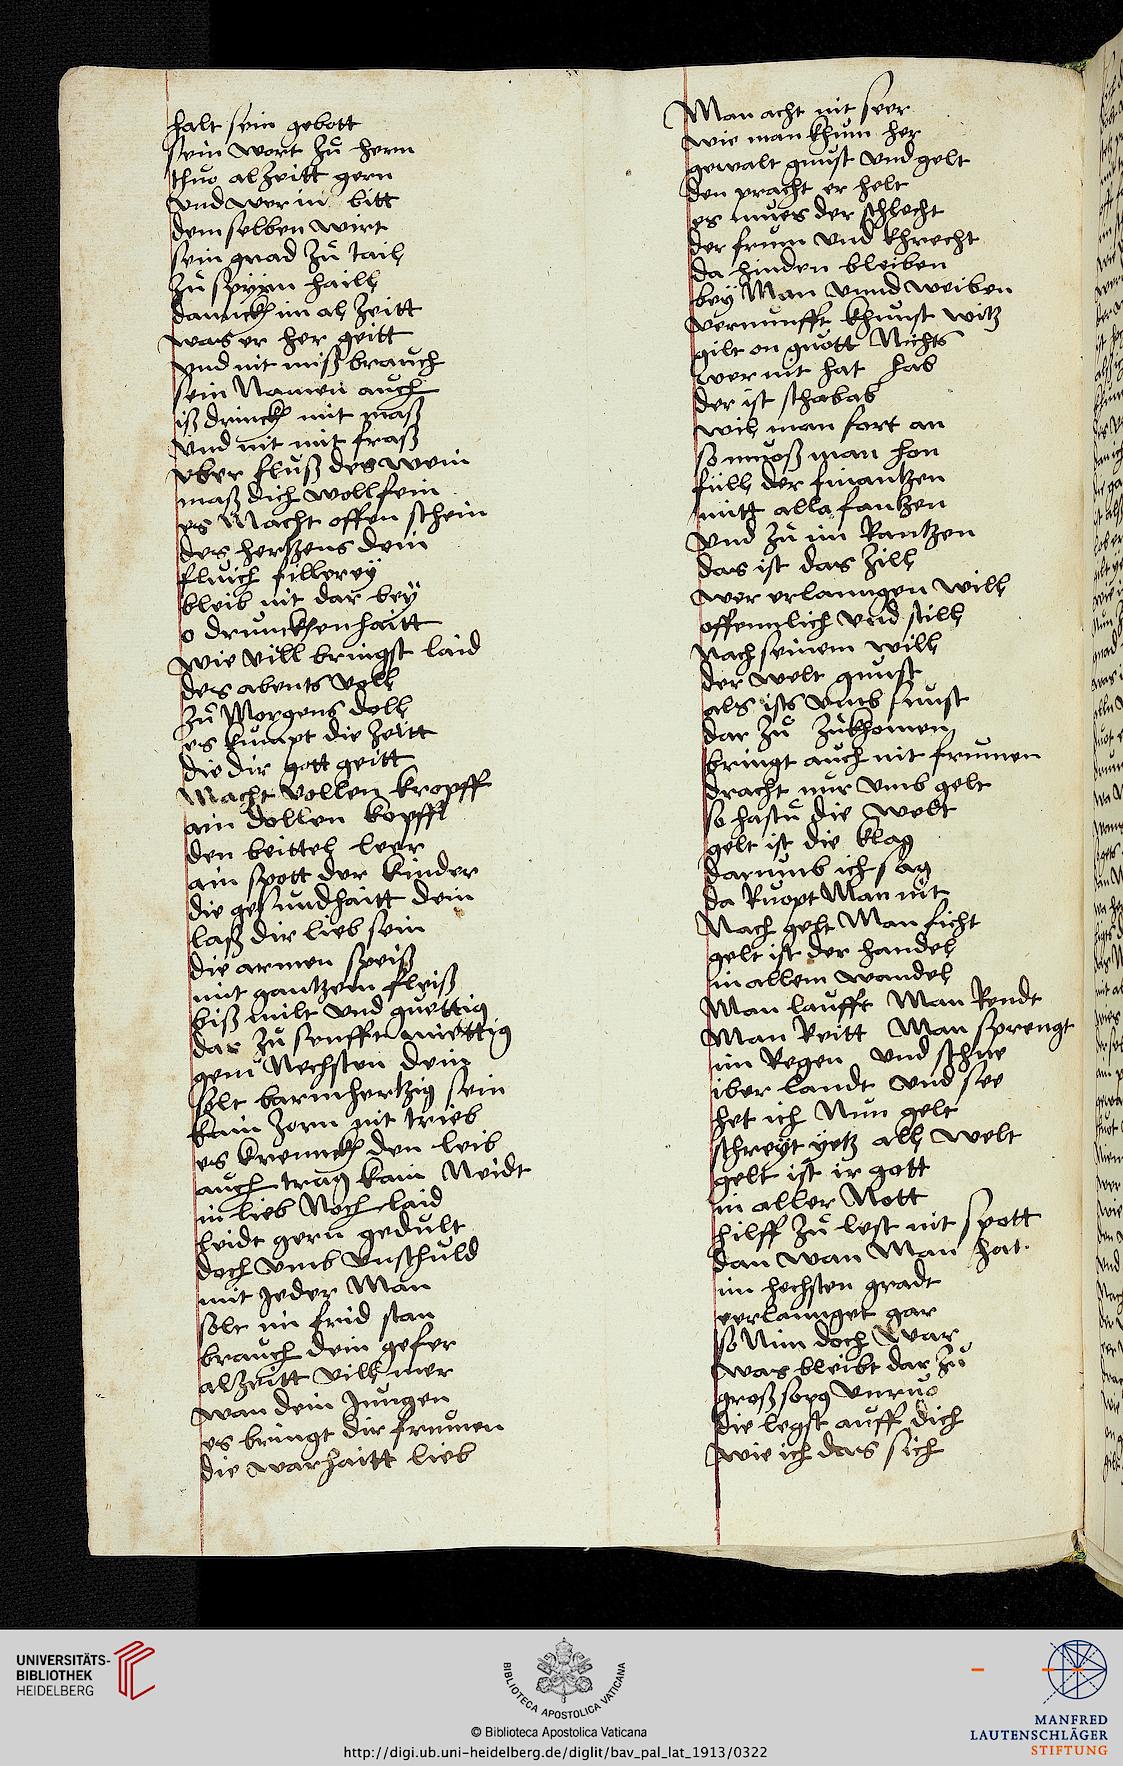 halt sein gebott
sein wort zů hern
thuo alzeitt gern
vnd wer in bitt
dem selben wirt
sein gnad zů tail
zů seyym haill
danckh im al zeitt
was er her geitt
vnd nit miß brauch
sein Namen auch
iß drinckh mit maß
vnd nit mit fraß
vber fluß des wein
maß dich woll fein
es Macht offen schein
des hertzens dein
fluich fillerey
bleib nit dar bey
o drunckhenhaitt
wie vill bringst laid
des abents voll
zů Morgens doll
es kumpt die zeitt
die dir gott geitt
Macht vollen kropff
ain dollen kopff
den beittel leer
ain spott der kinder
die gesundhaitt dein
laß dir lieb sein
die armen speiß
mit gantzem fleiß
biß milt vnd guettig
dar zů senfften miettig
gem Nechsten dein
solt barmhertzig sein
kain zorn nit trieb
es krenckh den leib
auch trag kain Neidt
in lieb Noch laid
leidt gern gedult
doch vmb vnschuld
mit Jeder Man
solt im frid stan
brauch dein gefer
alzeitt vill mer
wan dein Jungen
es bringt dir frumen
die warhaitt lieb
Man acht nit seer
wie man khum her
gewalt gunst vnd gelt
den pracht er helt
es mues der schlecht
der frum vnd khrecht
da hinden bleiben
bey Man vnnd weiben
vernunfft khunst witz
gilt on guott Nichts
wer nit hat hab
der ist schabab
wil man fort an
so muoß man hon
füll der finantzen
mitt alla fantzen
vnd zů im Rantzen
das ist das zill
wer erlanngen will
offennlich vnd still
Nach seinem will
der welt gunst
als ists vmb sunst
dar zů zůkhomen
bringt auch nit frumen
dracht nur vmb gelt
so hastu die welt
gelt ist die klag
darumb ich sag
da Ruopt Man nit
Nach gelt Man sicht
gelt ist der handel
in allem wandel
Man laufft Man Rendt
Man Reitt Man sprengt
im Regen vnd schne
iber landt vnd see
het ich Nun gelt
schreyt yetz all welt
gelt ist ir gott
in aller Nott
hilff zů lest nit spott
dan wan Man hat
im hechsten gradt
erlannget gar
so Nim doch war
was bleibt dar zů
groß sorg vnruo
die legst auff dich
wie ich das sich
UNIVERSITÄTS-
BIBLIOTHEK
HEIDELBERG
BIBLIOTECA APOSTOLICA VATICANA
© Biblioteca Apostolica Vaticana
http://digi.ub.uni-heidelberg.de/diglit/bav_pal_lat_1913/0322
MANFRED
LAUTENSCHLÄGER
STIFTUNG